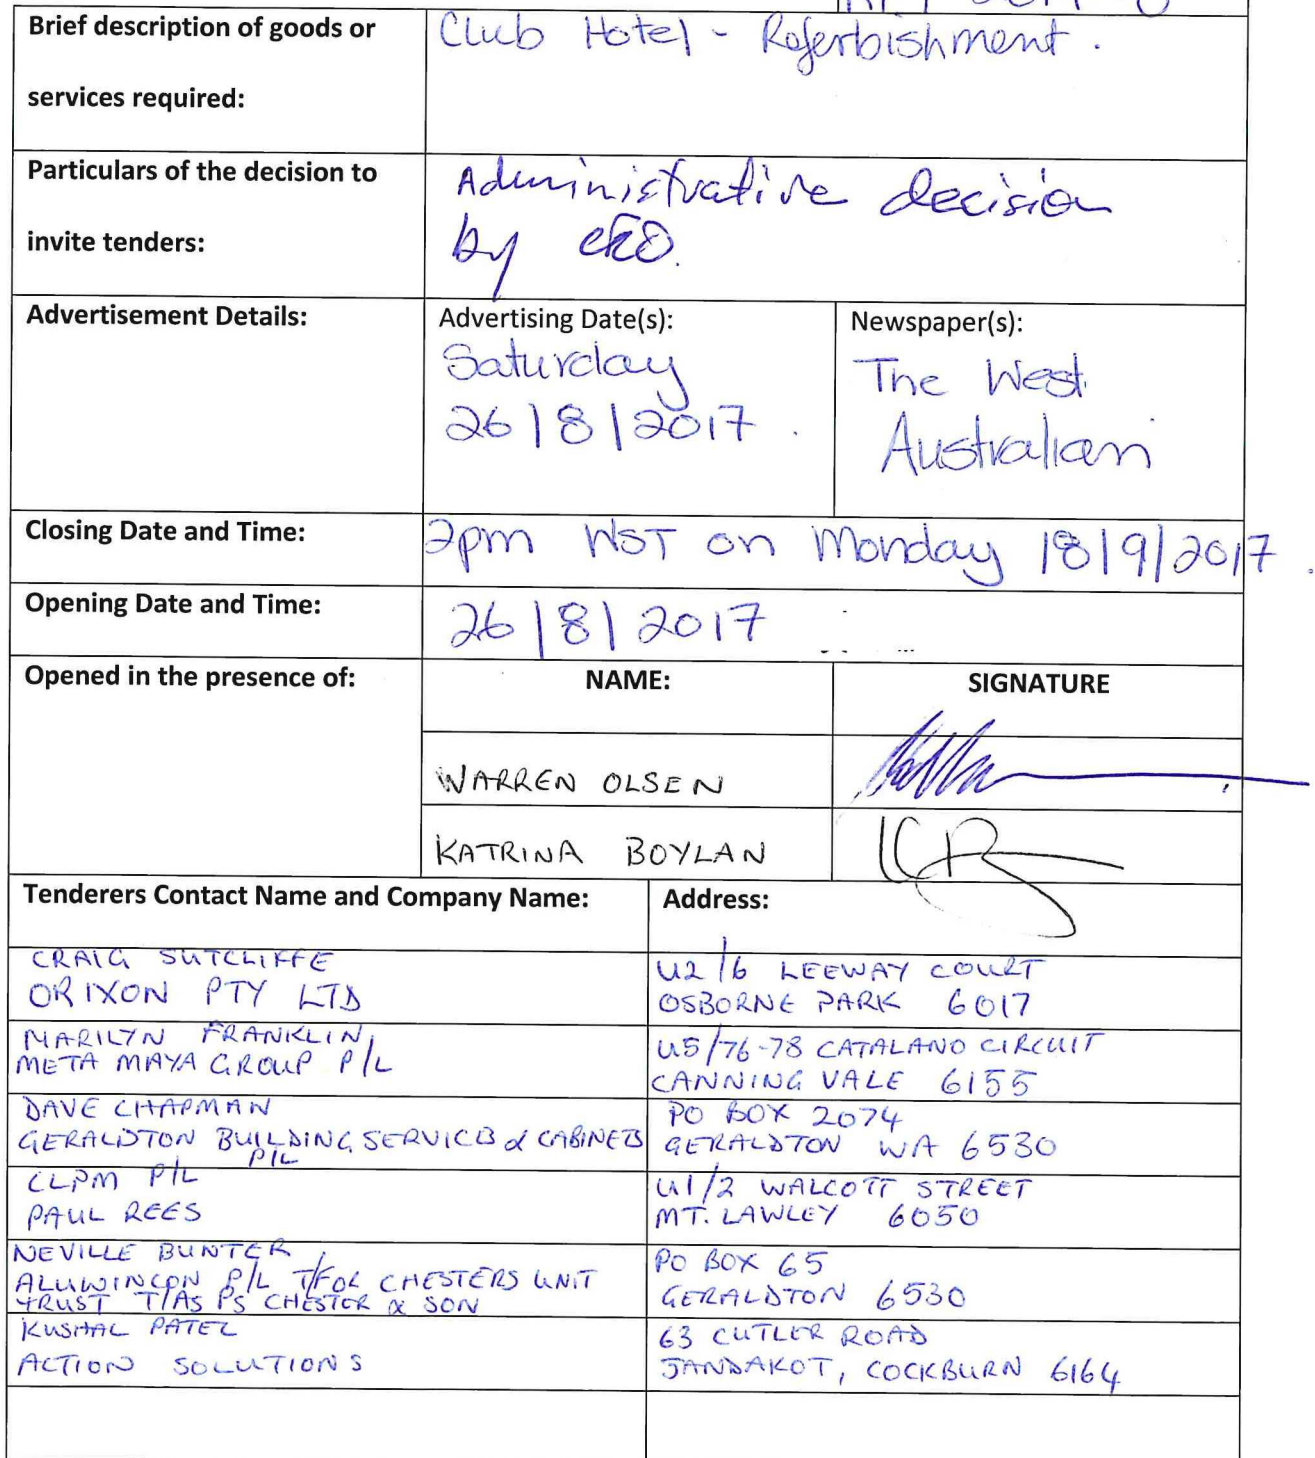 Brief description of goods or
services required:
Club Hotel - Referbishment.
Particulars of the decision to
invite tenders:
Administrative decision
by CEO.
Advertisement Details:
Advertising Date(s):
Saturday
26/8/2017.
Newspaper(s):
The West
Australian
Closing Date and Time:
2pm WST on Monday 18/9/2017.
Opening Date and Time:
26/8/2017
Opened in the presence of:
NAME:
SIGNATURE
WARREN OLSEN
KATRINA BOYLAN
KB
Tenderers Contact Name and Company Name:
Address:
CRAIG SUTCLIFFE
ORIXON PTY LTD
U2/6 LEEWAY COURT
OSBORNE PARK 6017
MARILYN FRANKLIN,
META MAYA GROUP P/L
U5/76-78 CATALANO CIRCUIT
CANNING VALE 6155
DAVE CHAPMAN
GERALDTON BUILDING SERVICES & CABINETS
P/L
PO BOX 2074
GERALDTON WA 6530
CLPM P/L
PAUL REES
U1/2 WALCOTT STREET
MT. LAWLEY 6050
NEVILLE BUNTER,
ALUWINCON P/L T/FOR CHESTERS UNIT
TRUST T/AS PS CHESTER & SON
PO BOX 65
GERALDTON 6530
KUSHAL PATEL
ACTION SOLUTIONS
63 CUTLER ROAD
JANDAKOT, COCKBURN 6164